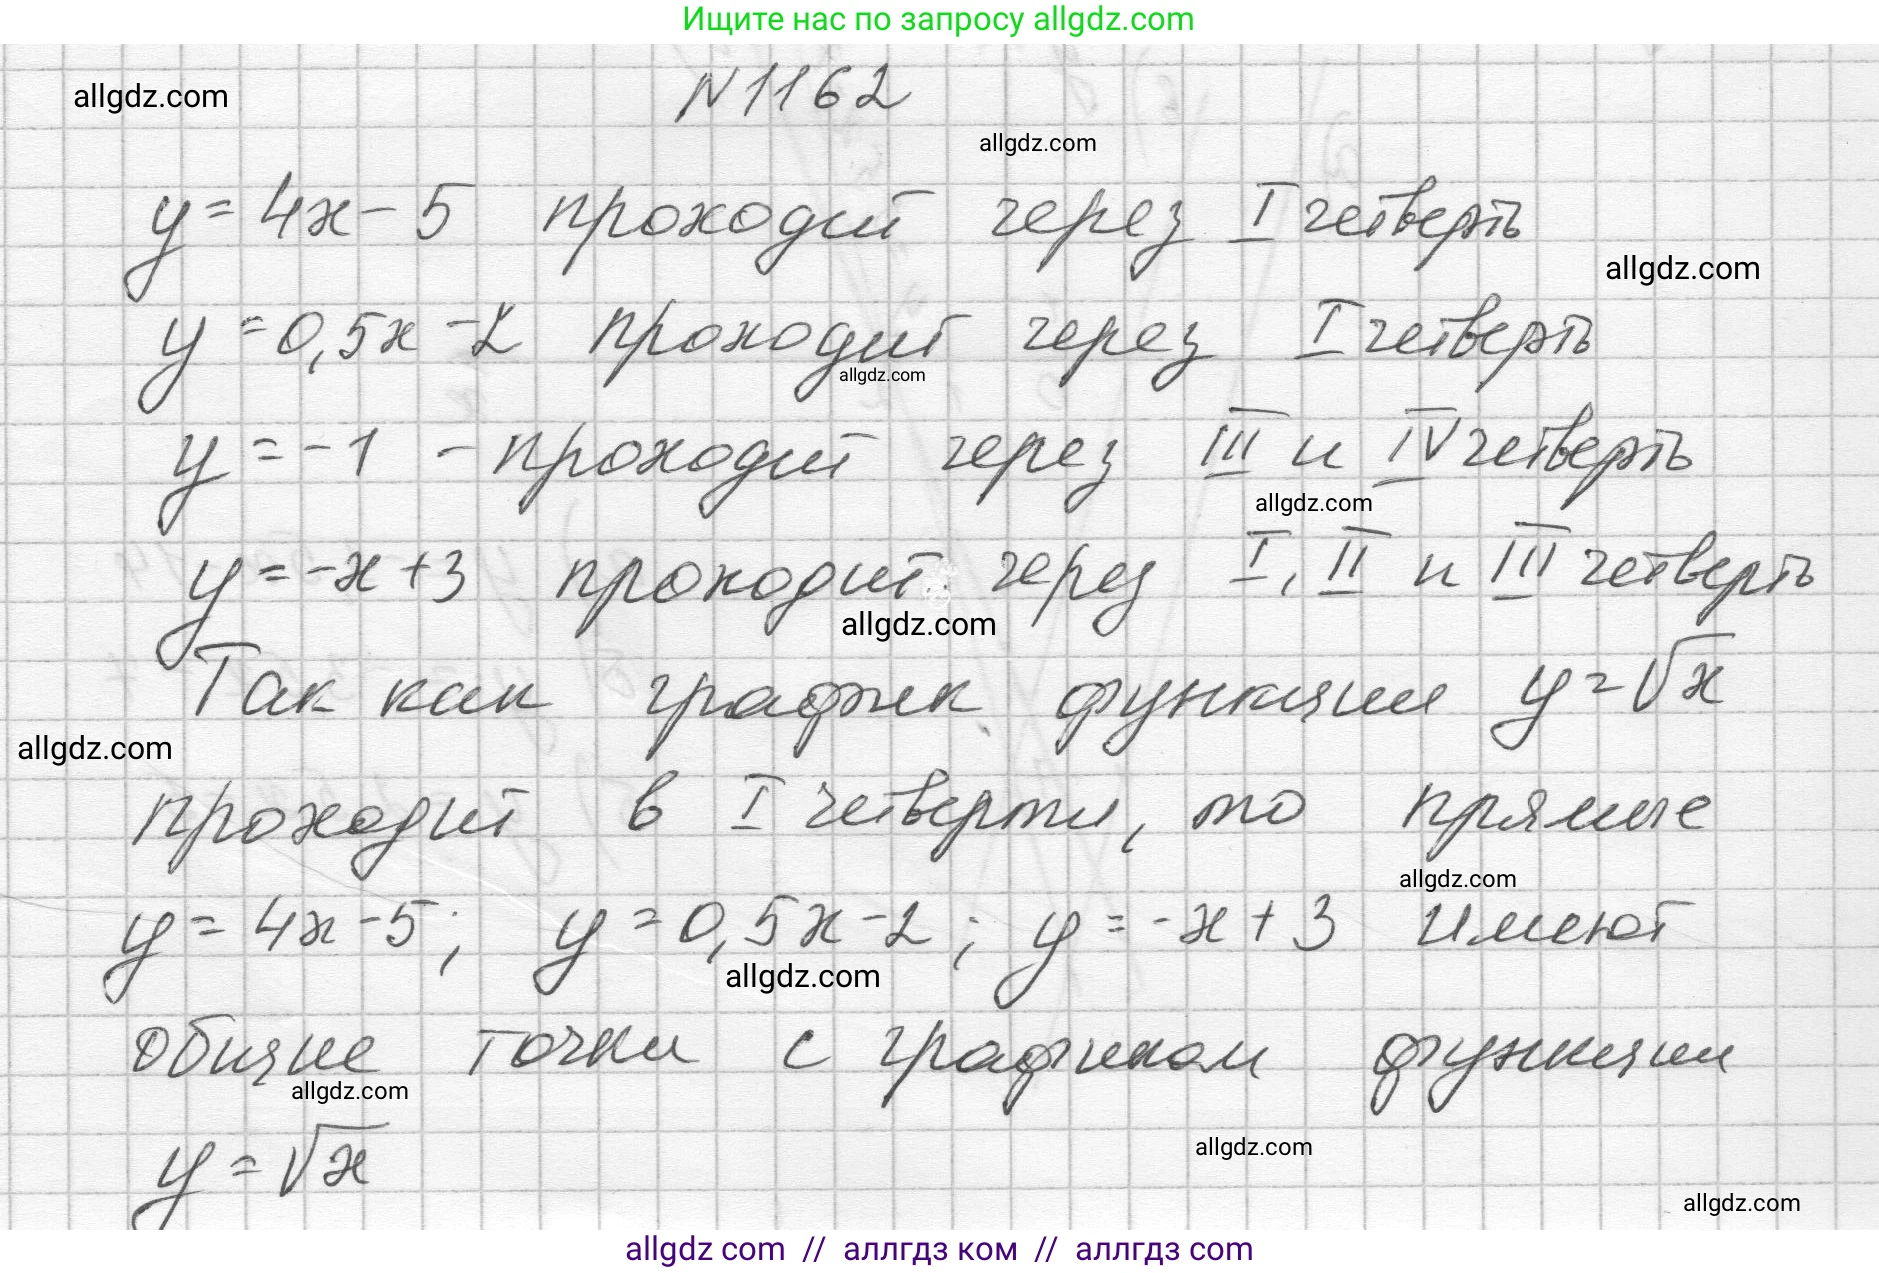 Ищите нас по запросу allgdz.com
allgdz.com
N1162
allgdz.com
y = 4x - 5 проходит через I четверть
allgdz.com
y = 0,5x - 2 проходит через I четверть
allgdz.com
y = -1 - проходит через III и IV четверть
allgdz.com
y = -x + 3 проходит через I, II и III четверть
allgdz.com
Так как график функции y = √x
allgdz.com
проходит в I четверти, то прямые
allgdz.com
y = 4x - 5; y = 0,5x - 2; y = -x + 3 имеют
allgdz.com
общие точки с графиком функции
allgdz.com
allgdz.com
y = √x
allgdz.com
allgdz com // аллгдз ком // аллгдз com